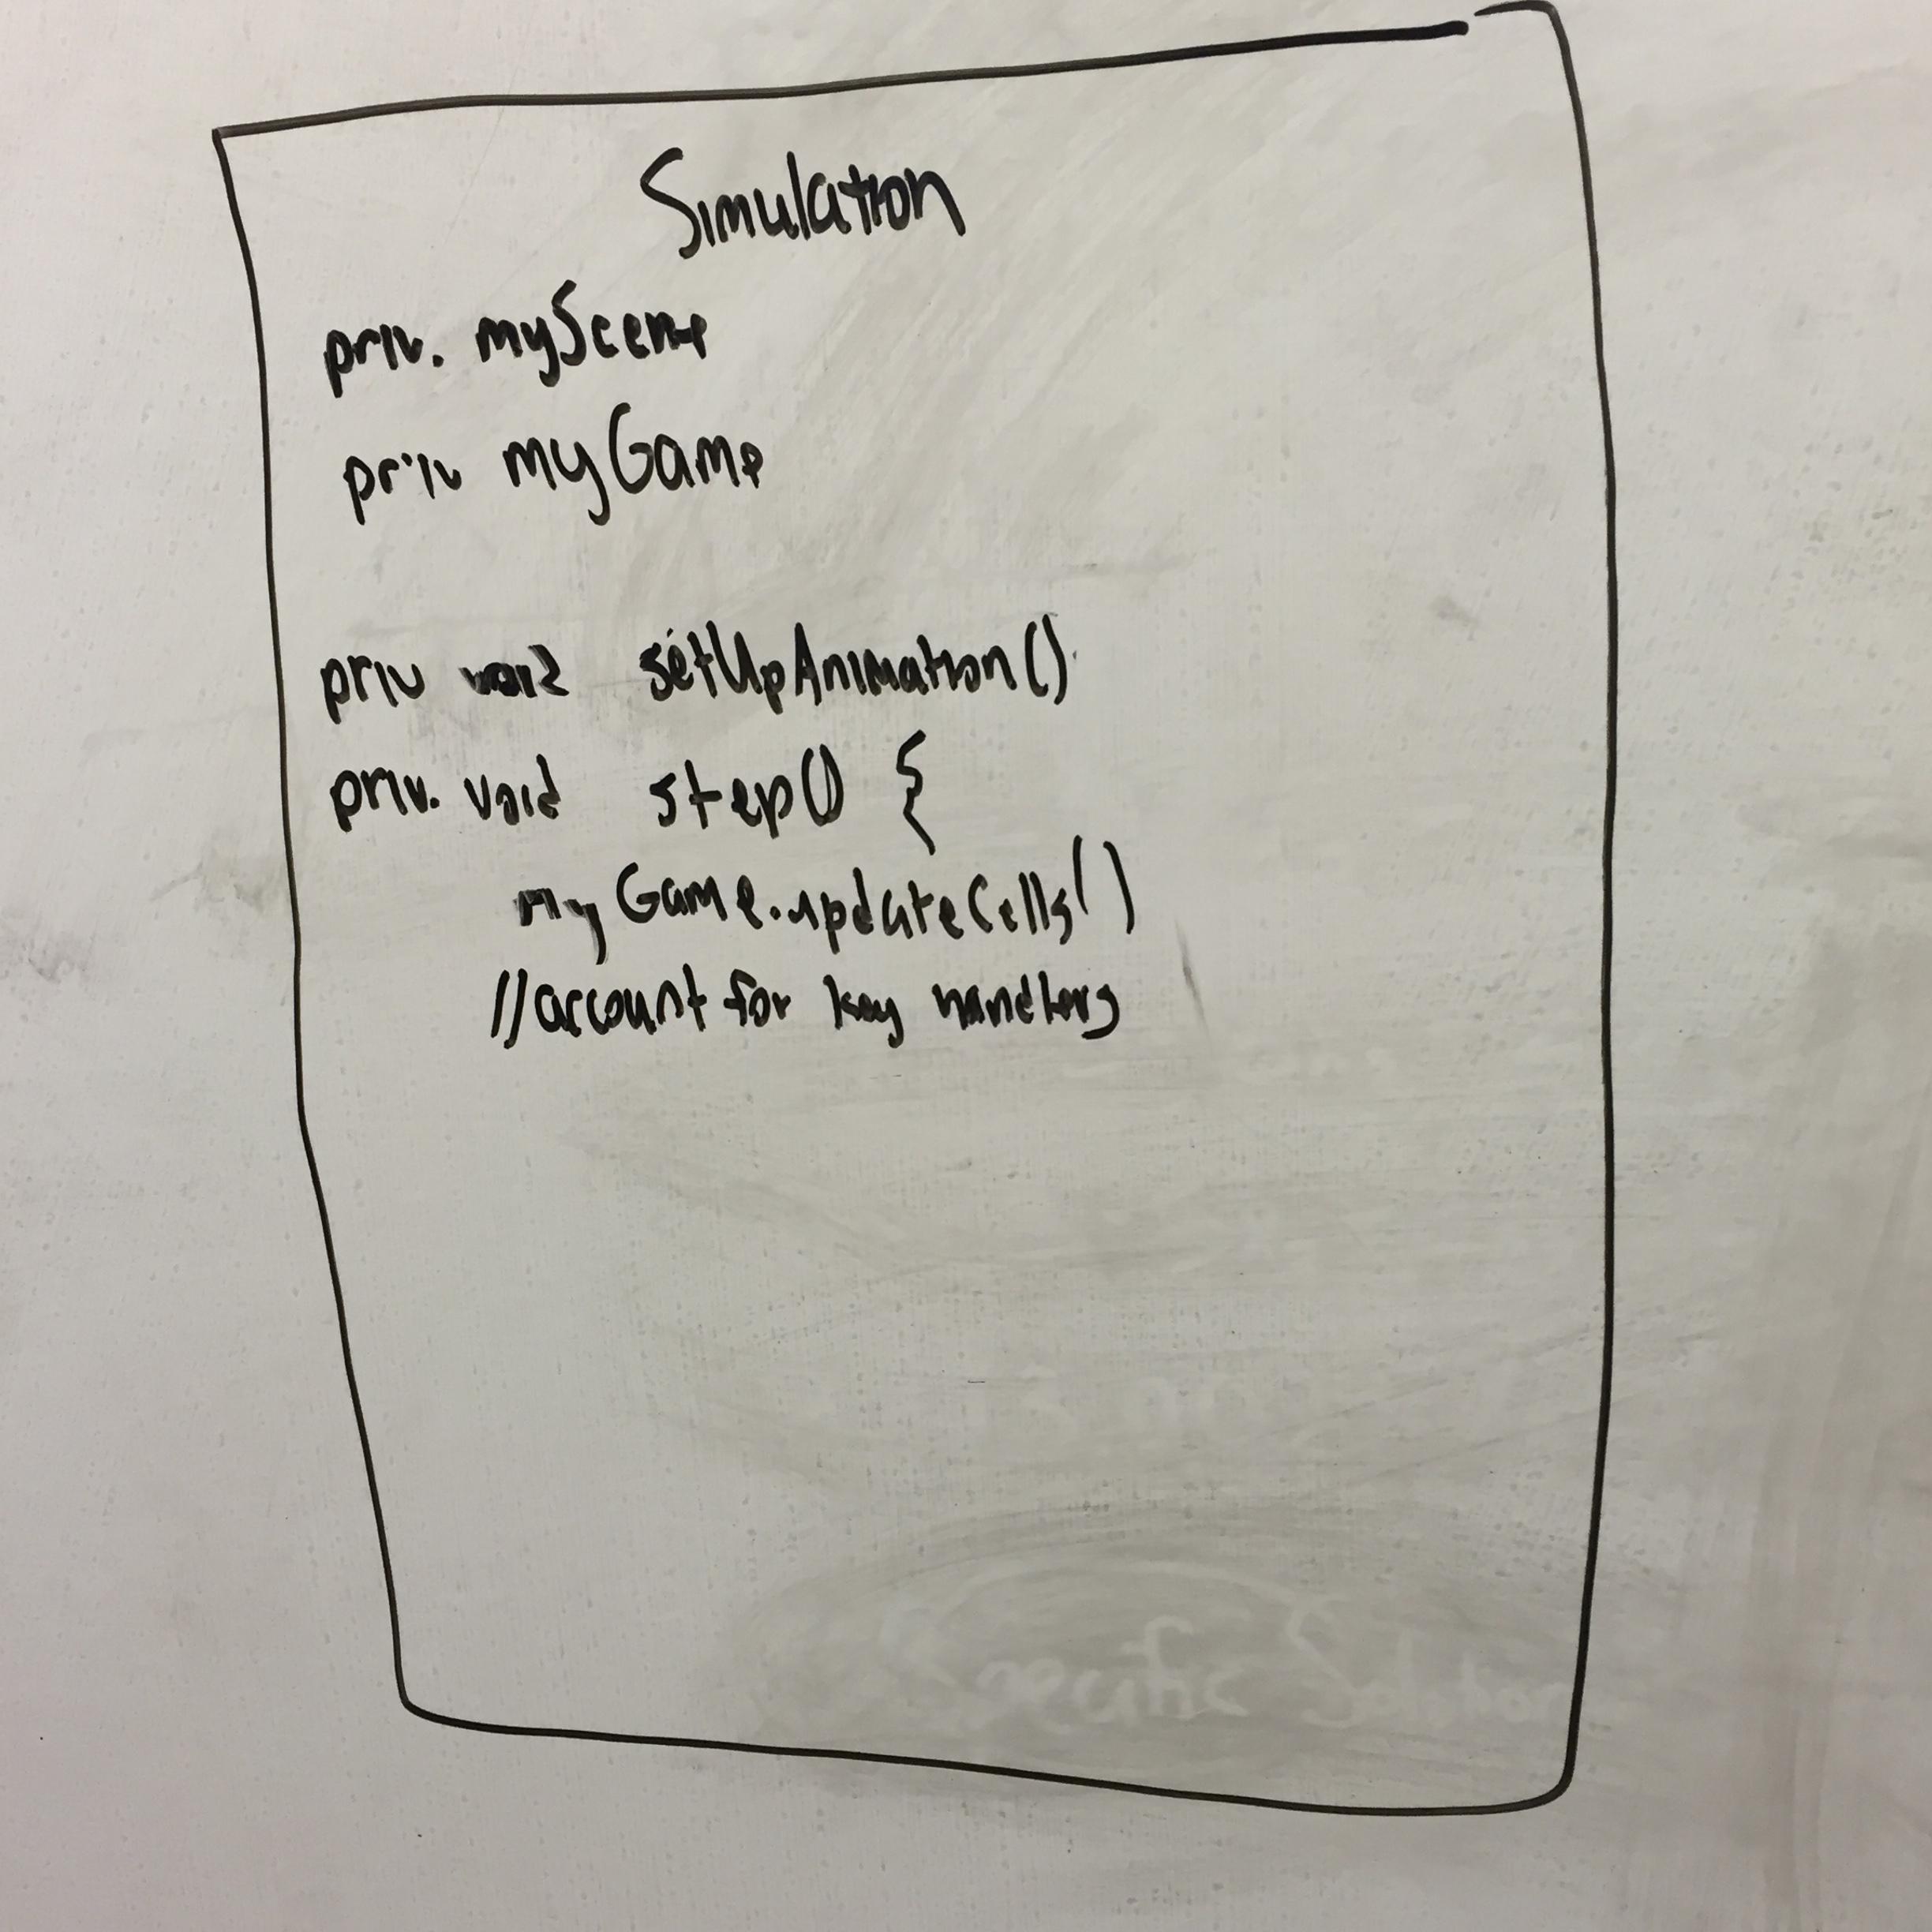 Simulation
priv. myScene
priv myGame
priv void setUpAnimation()
priv. void step() {
myGame.updateCells()
//account for key handlers